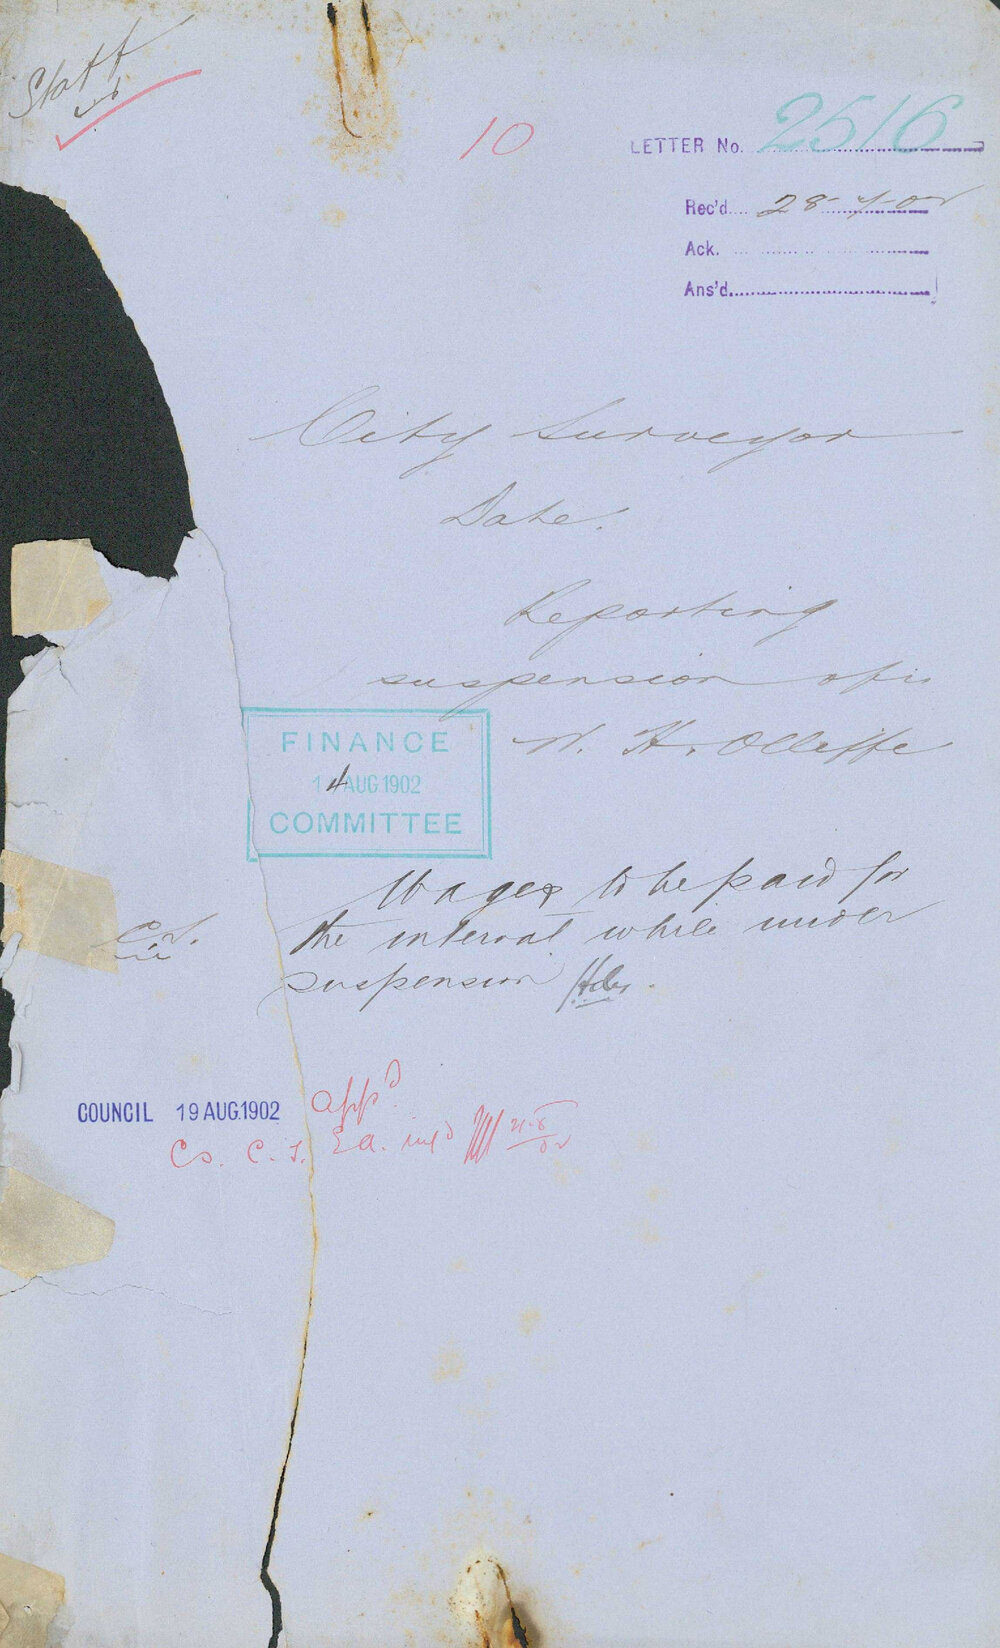 Staff
10
LETTER No. 2516
Rec'd. 28-7-02
Ack.
Ans'd.
City Surveyor
Date.
Reporting
suspension of
W. H. Olleffe
FINANCE
14 AUG 1902
COMMITTEE
Wages to be paid for
C.S. the interval while under
suspension
COUNCIL 19 AUG.1902 appd
Cs. C.T. Ea. infd 21-8/02